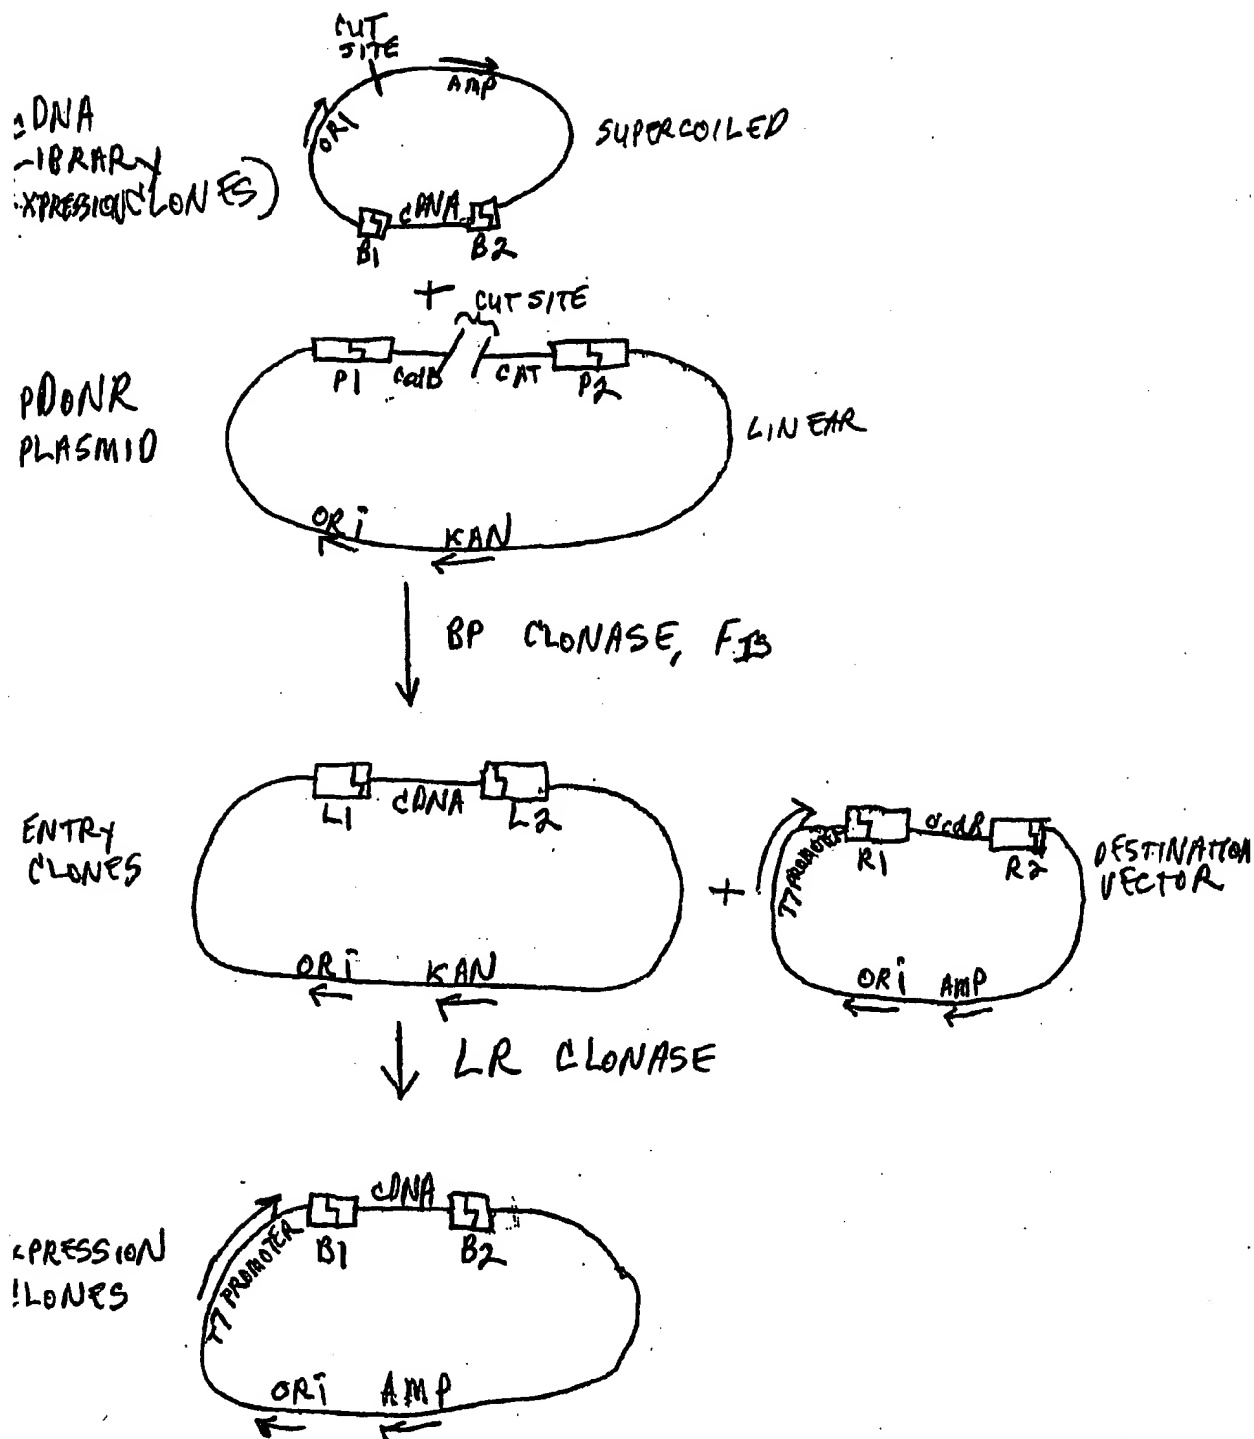 CUT
SITE
AMP
ORI
DNA
IBRARY
XPRESSION CLONES)
SUPERCOILED
cDNA
B1
B2
+
CUT SITE
P1
CcdB
CAT
P2
pDONR
PLASMID
LINEAR
ORi
KAN
BP CLONASE, FIS
L1
cDNA
L2
ENTRY
CLONES
ORi
KAN
+
T7 PROMOTER
R1
ccdB
R2
DESTINATION
VECTOR
ORi
AMP
LR CLONASE
cDNA
B1
B2
T7 PROMOTER
XPRESSION
LONES
ORi
AMP